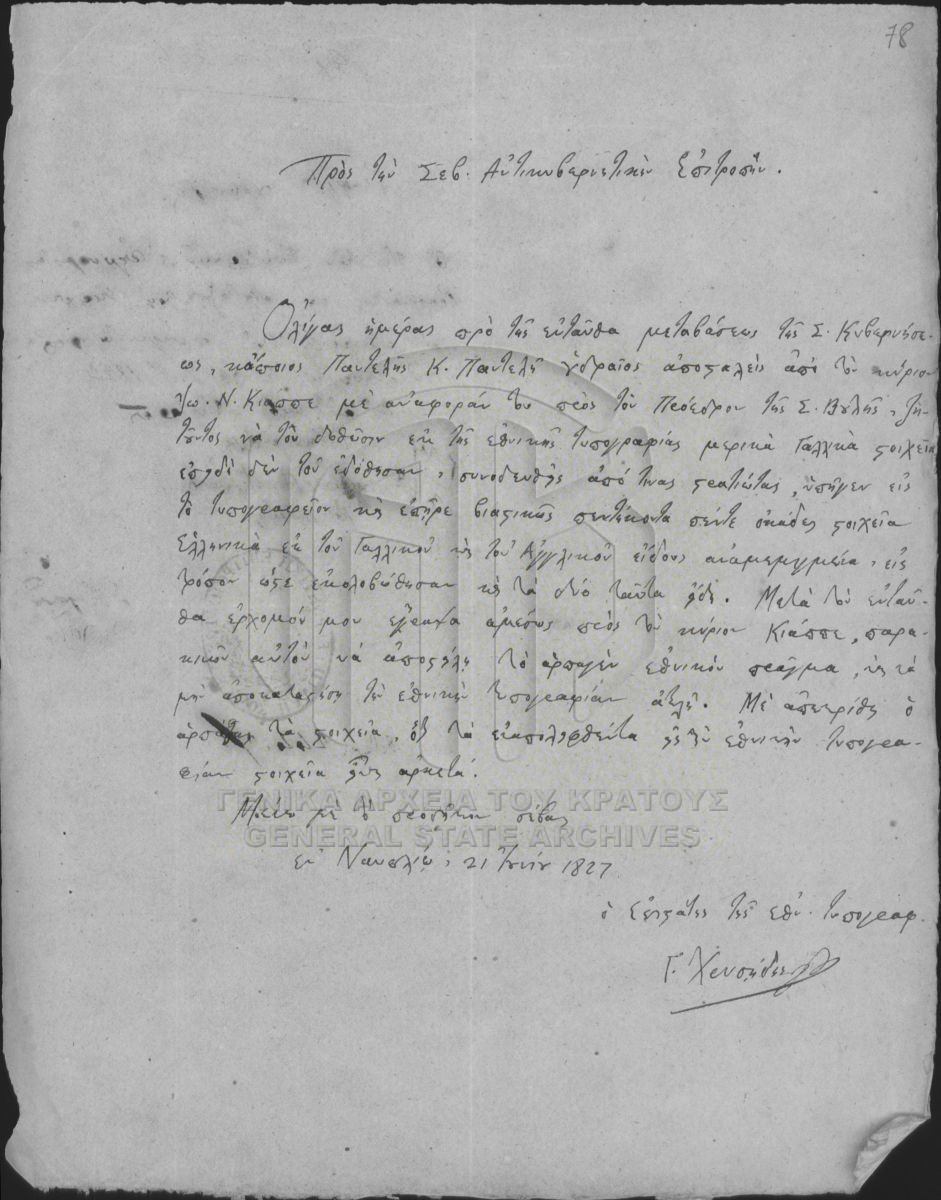 78
Πρὸς τὴν Σεβ. Ἀντικυβερνητικὴν Ἐπιτροπήν.
Ὀλίγας ἡμέρας πρὸ τῆς ἐνταῦθα μεταβάσεως τῆς Σ. Κυβερνήσε-
ως, κάποιος Παντελῆς Κ. Παντελῆ Ὑδραῖος ἀποσταλεὶς ἀπὸ τὸν κύριον
Ἰω. Ν. Κιάππε μὲ ἀναφοράν του πρὸς τὸν Πρόεδρον τῆς Σ. Βουλῆς, ζη-
τοῦντος νὰ τοῦ δοθῶσιν ἐκ τῆς ἐθνικῆς τυπογραφίας μερικὰ Γαλλικὰ στοιχεῖα
ἐπειδὴ δὲν τοῦ ἐδόθησαν, συνοδευθεὶς ἀπό τινας στρατιώτας, ὑπῆγεν εἰς
τὸ τυπογραφεῖον καὶ ἐπῆρε βιαστικῶς πεντήκοντα πέντε ὀκάδες στοιχεῖα
Ἑλληνικὰ ἐκ τοῦ Γαλλικοῦ καὶ τοῦ Ἀγγλικοῦ εἴδους ἀναμεμιγμένα, εἰς
τρόπον ὥστε ἐκολοβώθησαν καὶ τὰ δύο ταῦτα εἴδη. Μετὰ τὸν ἐνταῦ-
θα ἐρχομόν μου ἔγραψα ἀμέσως πρὸς τὸν κύριον Κιάππε, παρα-
κινῶν αὐτὸν νὰ ἀποστείλῃ τὸ ἁρπαγὲν ἐθνικὸν πρᾶγμα, καὶ νὰ
μὴ ἀποκαταστήσῃ τὴν ἐθνικὴν τυπογραφίαν ἀτελῆ. Μὲ ἀπεκρίθη ὁ
τὰ στοιχεῖα, ὅτι τὰ ἐναπολειφθέντα εἰς τὴν ἐθνικὴν τυπογρα-
φίαν στοιχεῖα εἶναι ἀρκετά.
Μένω μὲ τὸ προσῆκον σέβας
ἐν Ναυπλίῳ, 21 Ἰουνίου 1827
ὁ ἐπιστάτης τῆς ἐθν. τυπογραφ.
Γ. Χρυσηίδης
ΓΕΝΙΚΑ ΑΡΧΕΙΑ ΤΟΥ ΚΡΑΤΟΥΣ
GENERAL STATE ARCHIVES